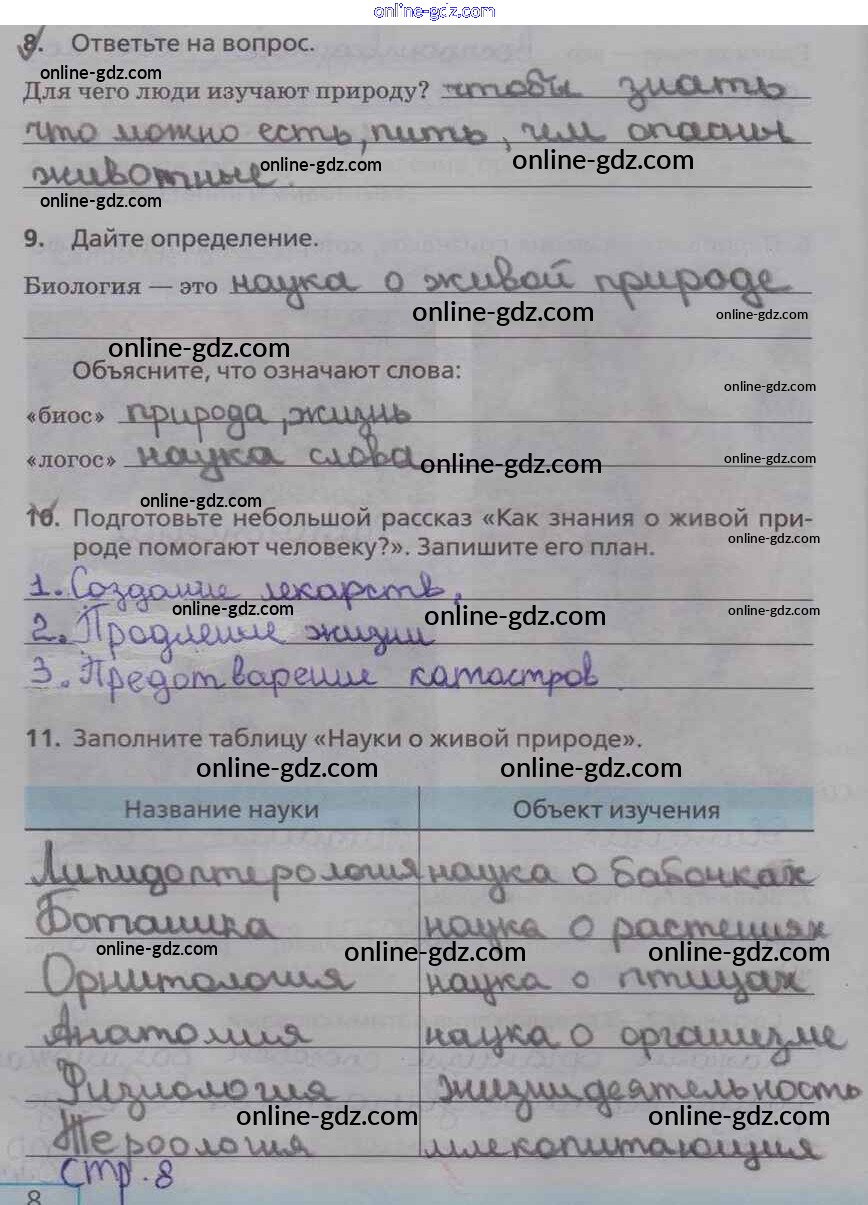 online-gdz.com
8. Ответьте на вопрос.
online-gdz.com
Для чего люди изучают природу? чтобы знать
что можно есть, пить, чем опасны
online-gdz.com online-gdz.com
животные.
online-gdz.com
9. Дайте определение.
Биология — это наука о живой природе
online-gdz.com online-gdz.com
online-gdz.com
Объясните, что означают слова:
online-gdz.com
«биос» природа, жизнь
«логос» наука слова
online-gdz.com online-gdz.com
online-gdz.com
10. Подготовьте небольшой рассказ «Как знания о живой при-
online-gdz.com
роде помогают человеку?». Запишите его план.
1. Создание лекарств.
online-gdz.com online-gdz.com online-gdz.com
2. Продление жизни
3. Предотварение катастров.
11. Заполните таблицу «Науки о живой природе».
online-gdz.com online-gdz.com
Название науки Объект изучения
Липидоптерология наука о бабочках
Ботаника наука о растениях
online-gdz.com online-gdz.com online-gdz.com
Орнитология наука о птицах
Анатомия наука о организме
Физиология жизнидеятельность
online-gdz.com online-gdz.com
Терология млекопитающия
стр. 8
8